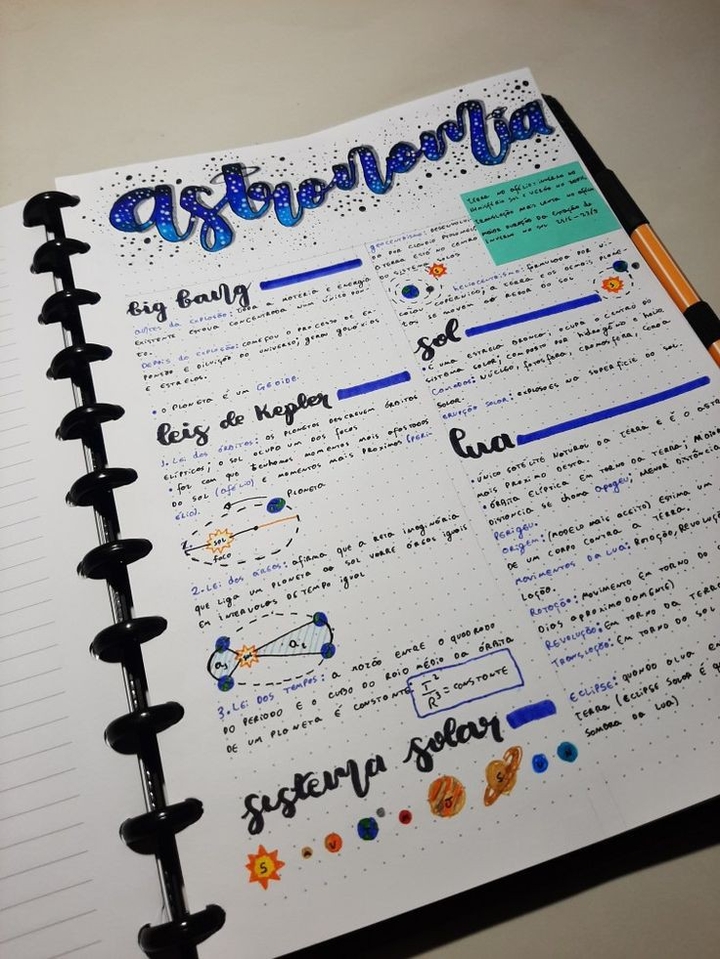 astronomia
big bang
antes da explosão: toda a matéria e energia
existente estava concentrada num único pon-
to.
Depois da explosão: começou o processo de ex-
pansão e divisão do universo, gerou galáxias
e estrelas.
• o planeta é um Geoide.
leis de Kepler
1. Lei das órbitas: os planetas descrevem órbitas
elípticas; o sol ocupa um dos focos
• faz com que tenhamos momentos mais afastados
do sol (afélio) e momentos mais próximos (peri-
élio).
Planeta
sol
foco
2. Lei das áreas: afirma que a reta imaginária
que liga um planeta ao sol varre áreas iguais
em intervalos de tempo igual
a1
sol
a2
3. Lei dos tempos: a razão entre o quadrado
do período e o cubo do raio médio da órbita
de um planeta é constante.
T²
R³ = constante
sistema solar
S
V
T
J
S
U
N
Terra no afélio: inverno no
hemisfério sul e verão no
translação mais lenta no afélio
maior duração da estação do
inverno no sul
geocentrismo:
do por Cláudio
a Terra está no centro
do sistema
T
S
heliocentrismo: formulada por Ni-
colau Copérnico; a Terra e os demais plane-
tas se movem ao redor do sol
S
sol
• é uma estrela branca; ocupa o centro do
sistema solar; composto por hidrogênio e hélio
camadas: núcleo, fotosfera, cromosfera, coroa
solar.
erupção solar: explosões na superfície do sol.
lua
• único satélite natural da Terra e é o
mais próximo desta.
• órbita elíptica em torno da Terra;
distância se chama apogeu, menor distância
perigeu.
origem: (modelo mais aceito) estima um
de um corpo contra a Terra.
movimentos da lua: rotação,
lação.
Rotação: movimento em torno do
dias aproximadamente)
Revolução: em torno da Terra
Translação: em torno do sol
Eclipse: quando a lua
Terra (eclipse solar é
sombra da lua)